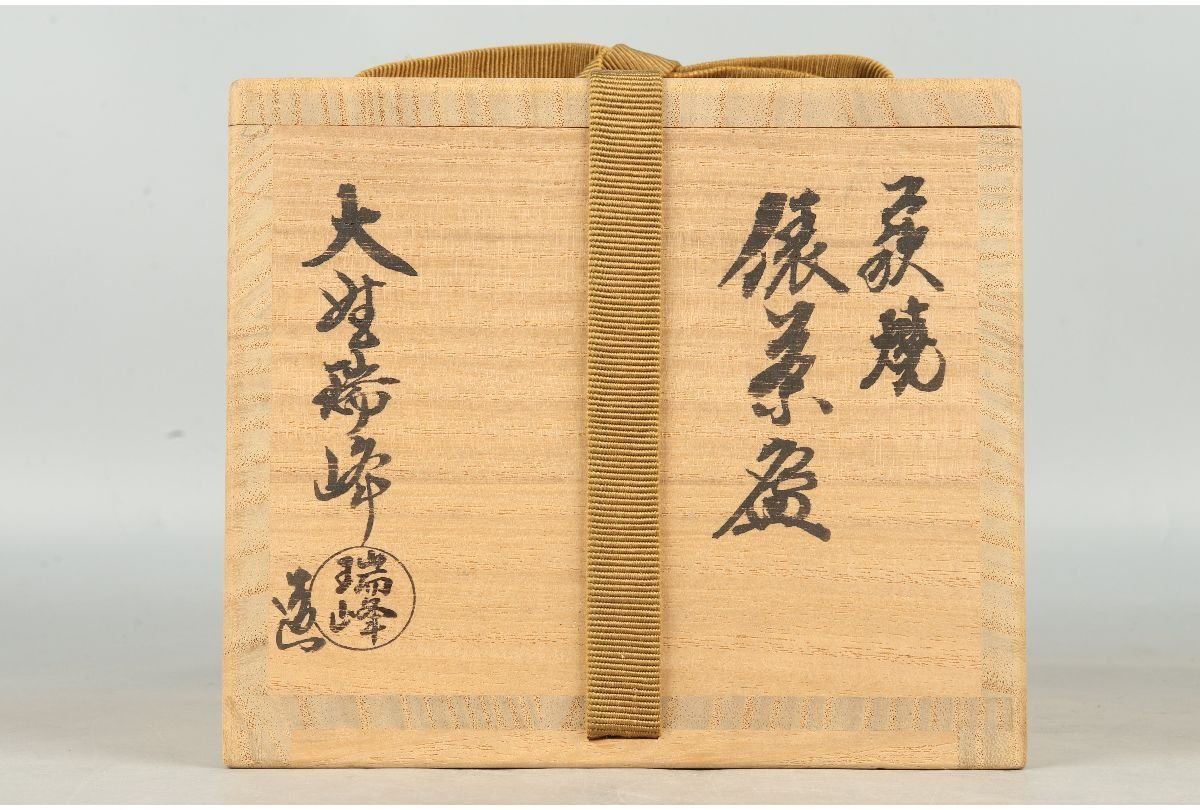 萩燒
俵茶盌
大野瑞峰
瑞峰
造